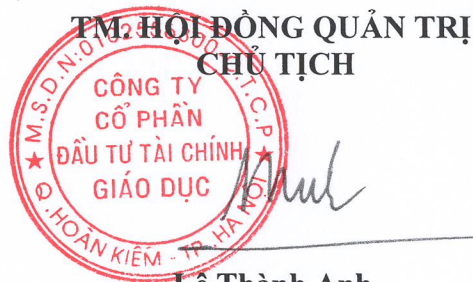 TM. HỘI ĐỒNG QUẢN TRỊ
CHỦ TỊCH
CÔNG TY
CỔ PHẦN
ĐẦU TƯ TÀI CHÍNH
GIÁO DỤC
Q. HOÀN KIẾM - TP. HÀ NỘI
Lê Thành Anh